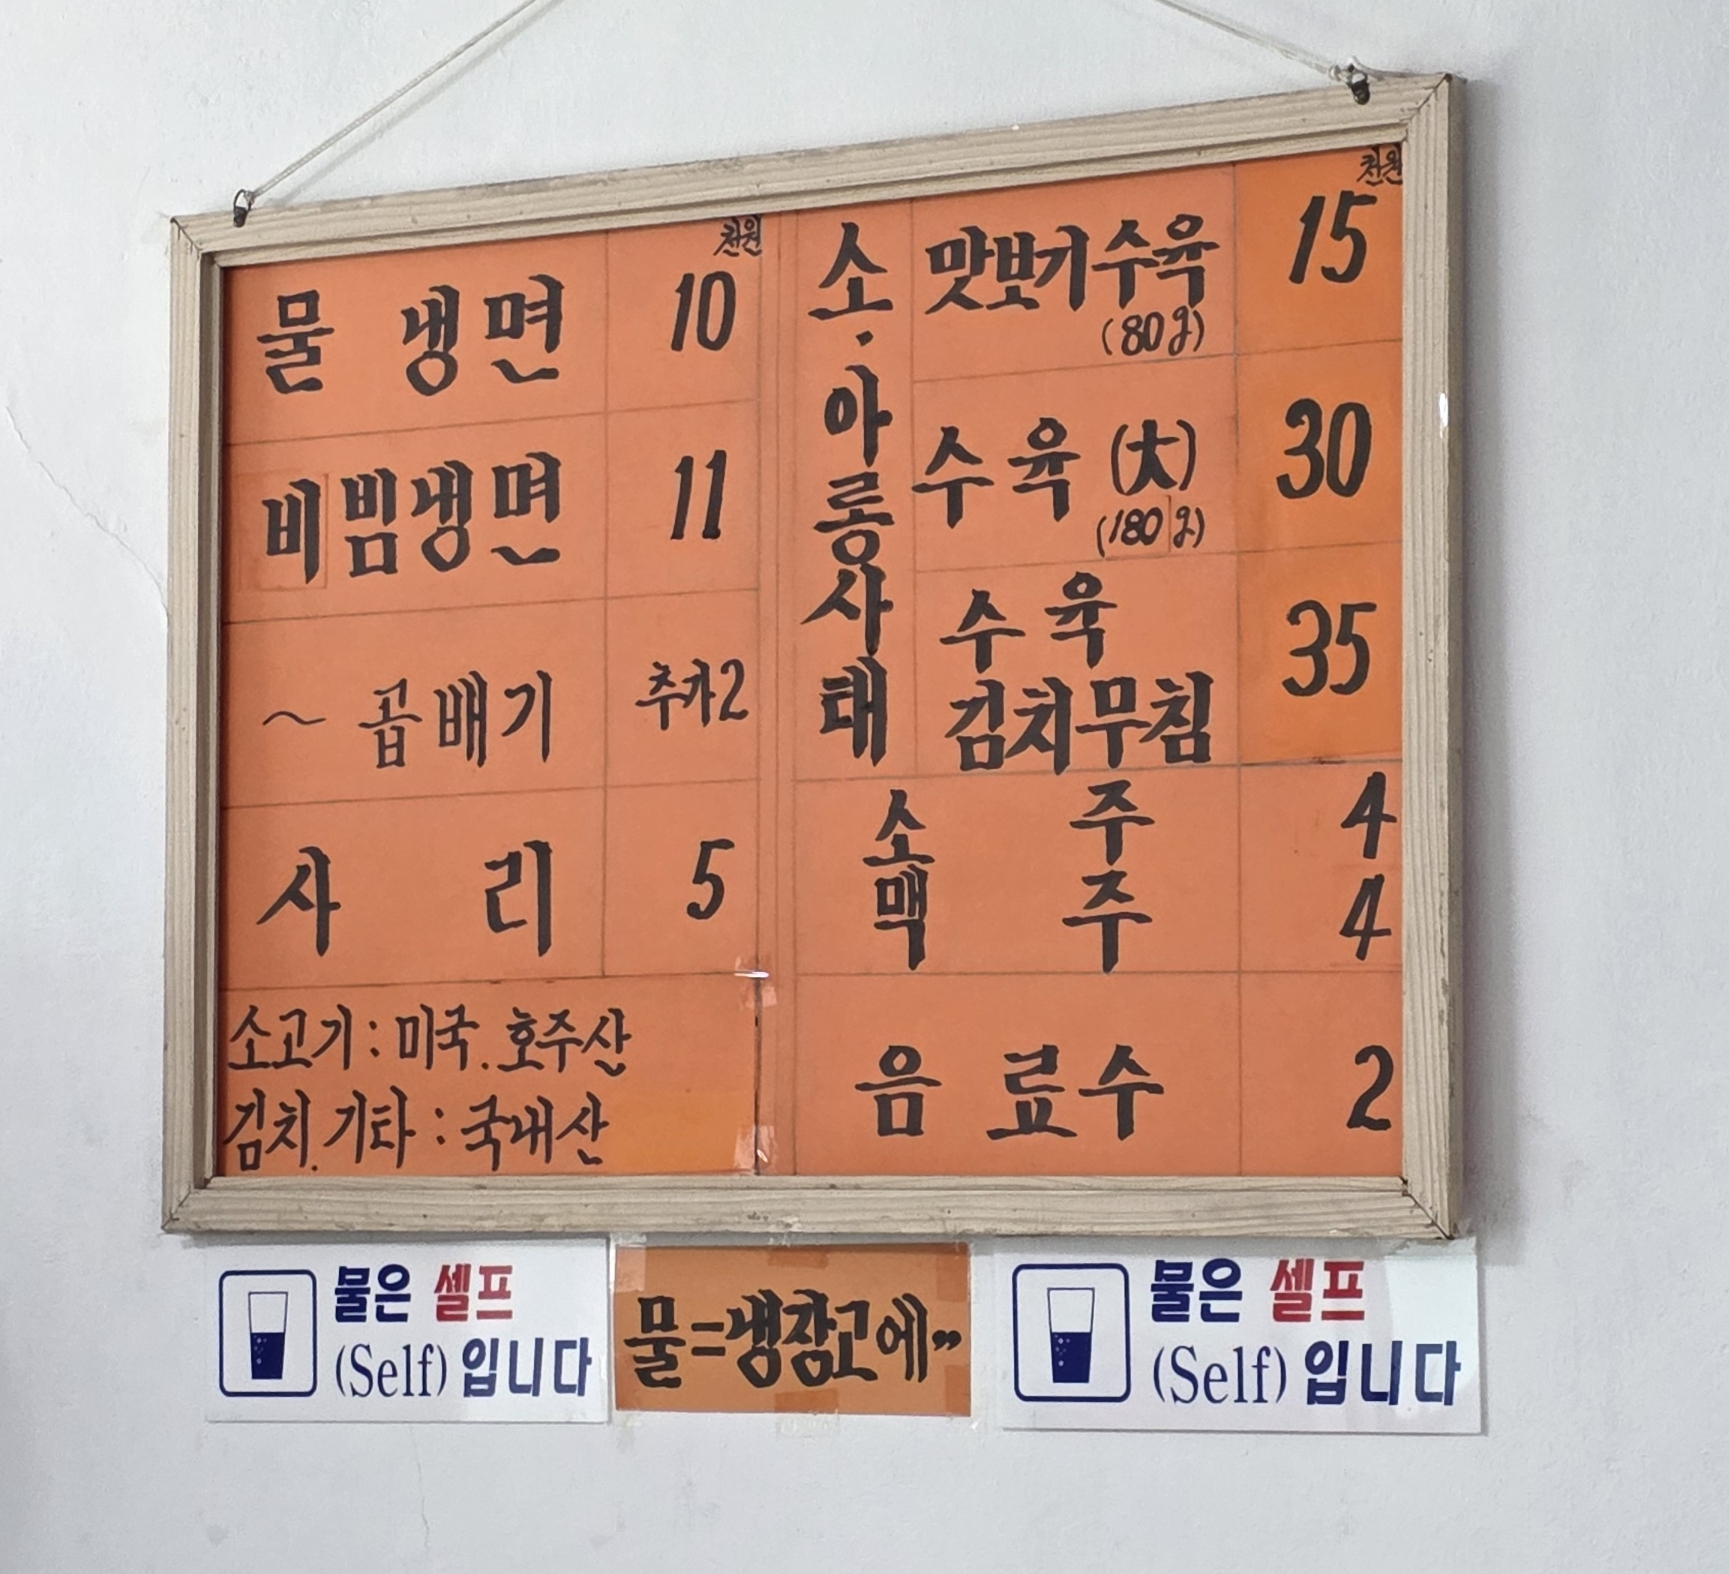 천원
물 냉면 10
비빔냉면 11
~ 곱빼기 추가2
사리 5
소고기 : 미국. 호주산
김치. 기타 : 국내산
천원
소·아롱사태
맛보기수육 15
(80g)
수육 (大) 30
(180g)
수육
김치무침 35
소주 4
맥주 4
음료수 2
물은 셀프
(Self) 입니다
물=냉장고에"
물은 셀프
(Self) 입니다